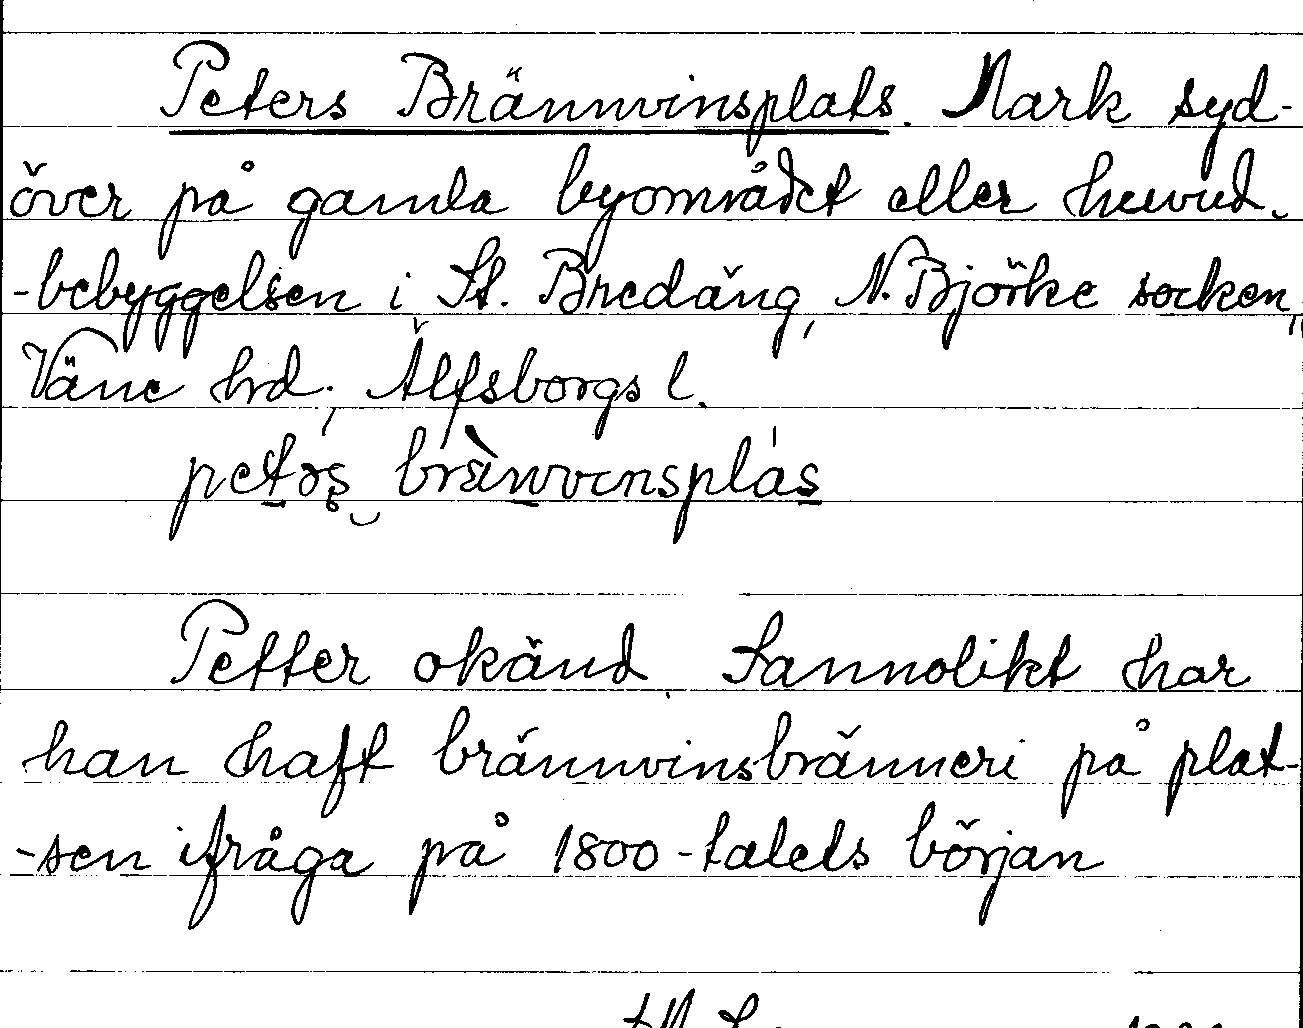 Peters Brännvinsplats. Mark syd-
över på gamla byområdet eller huvud-
-bebyggelsen i St. Bredäng, N. Björke socken,
Väne hrd; Älfsborgs l.
petəs brä̀nvinsplás
Petter okänd. Sannolikt har
han haft brännvinsbränneri på plat-
-sen ifråga på 1800-talets början